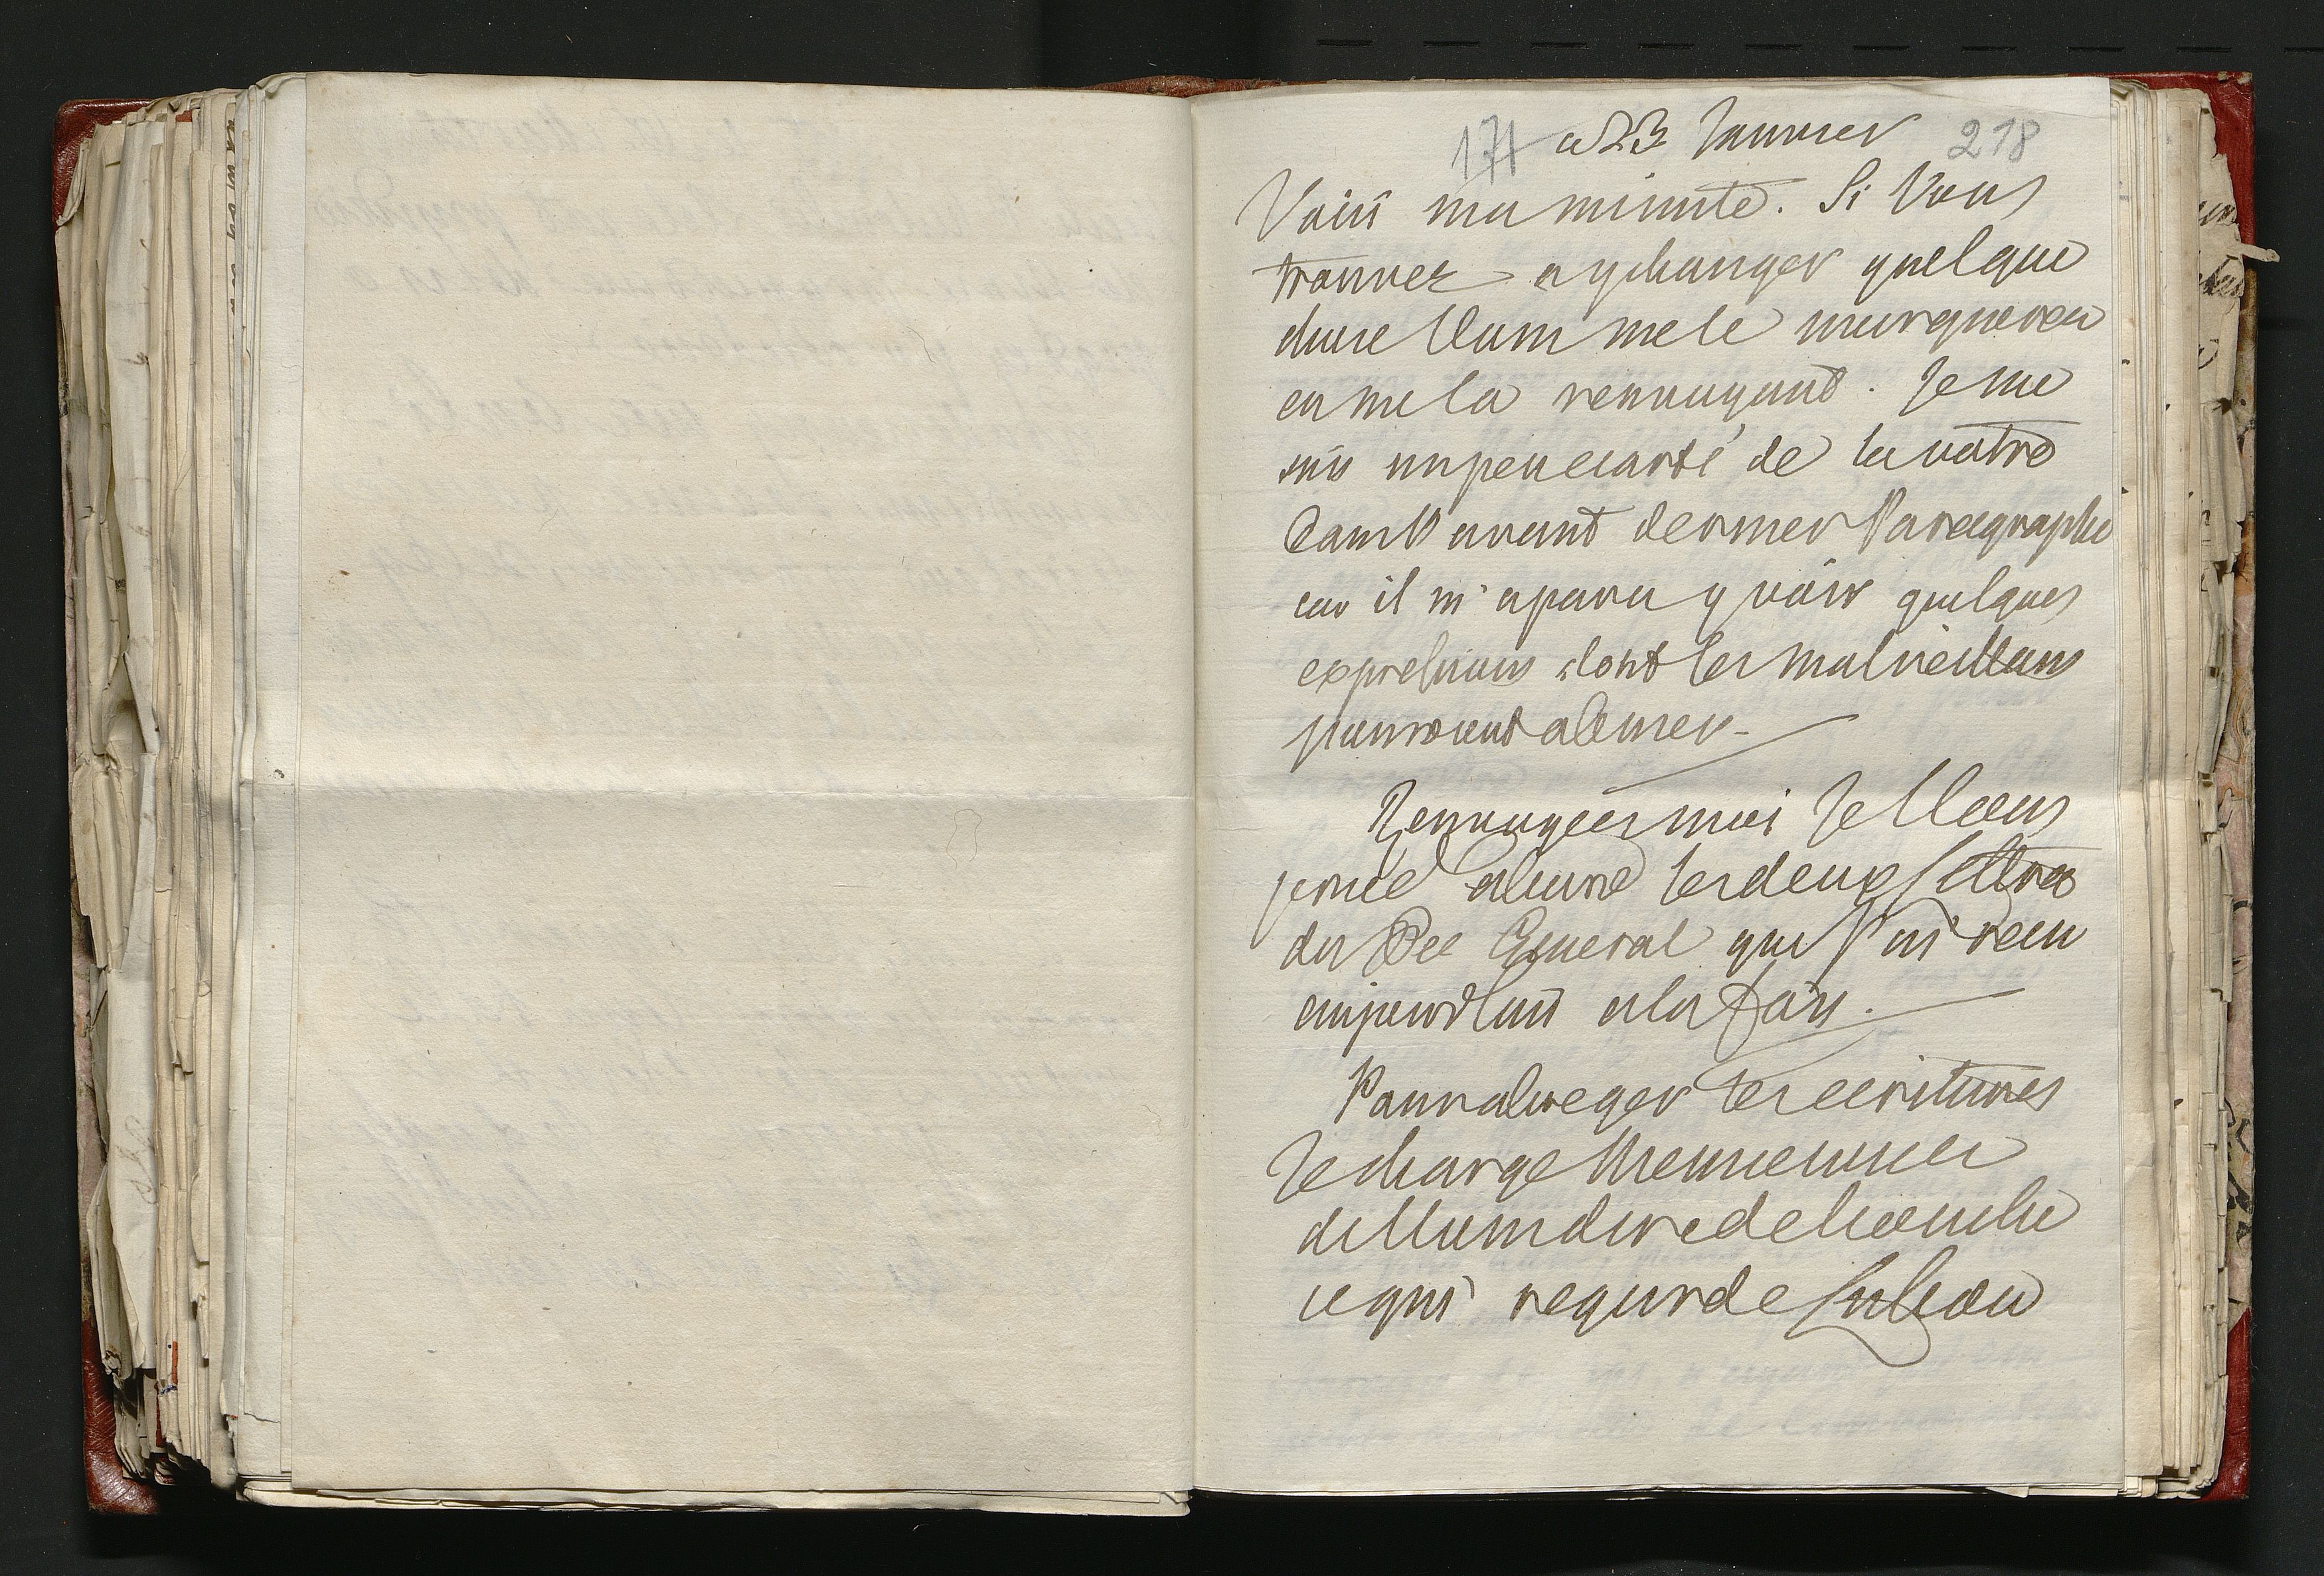 171 a 23 Janvier 218
Voici ma minute. Si Vous
trouvez a y changer quelque
chose Vous me le marquerez
en me la renvoyant. Je me
suis un peu ecarté de la votre
dans l'avant dernier Paragraphe
car il m'a paru y voir quelques
expressions dont les malveillans
pourroient abuser.
Renvoyées moi Je Vous
prie alune les deux lettres
du General que J'ai recu
aujourdhui a la fois.
Pour abreger les ecritures
Je charge
de Vous dire de bouche
ce qui regarde